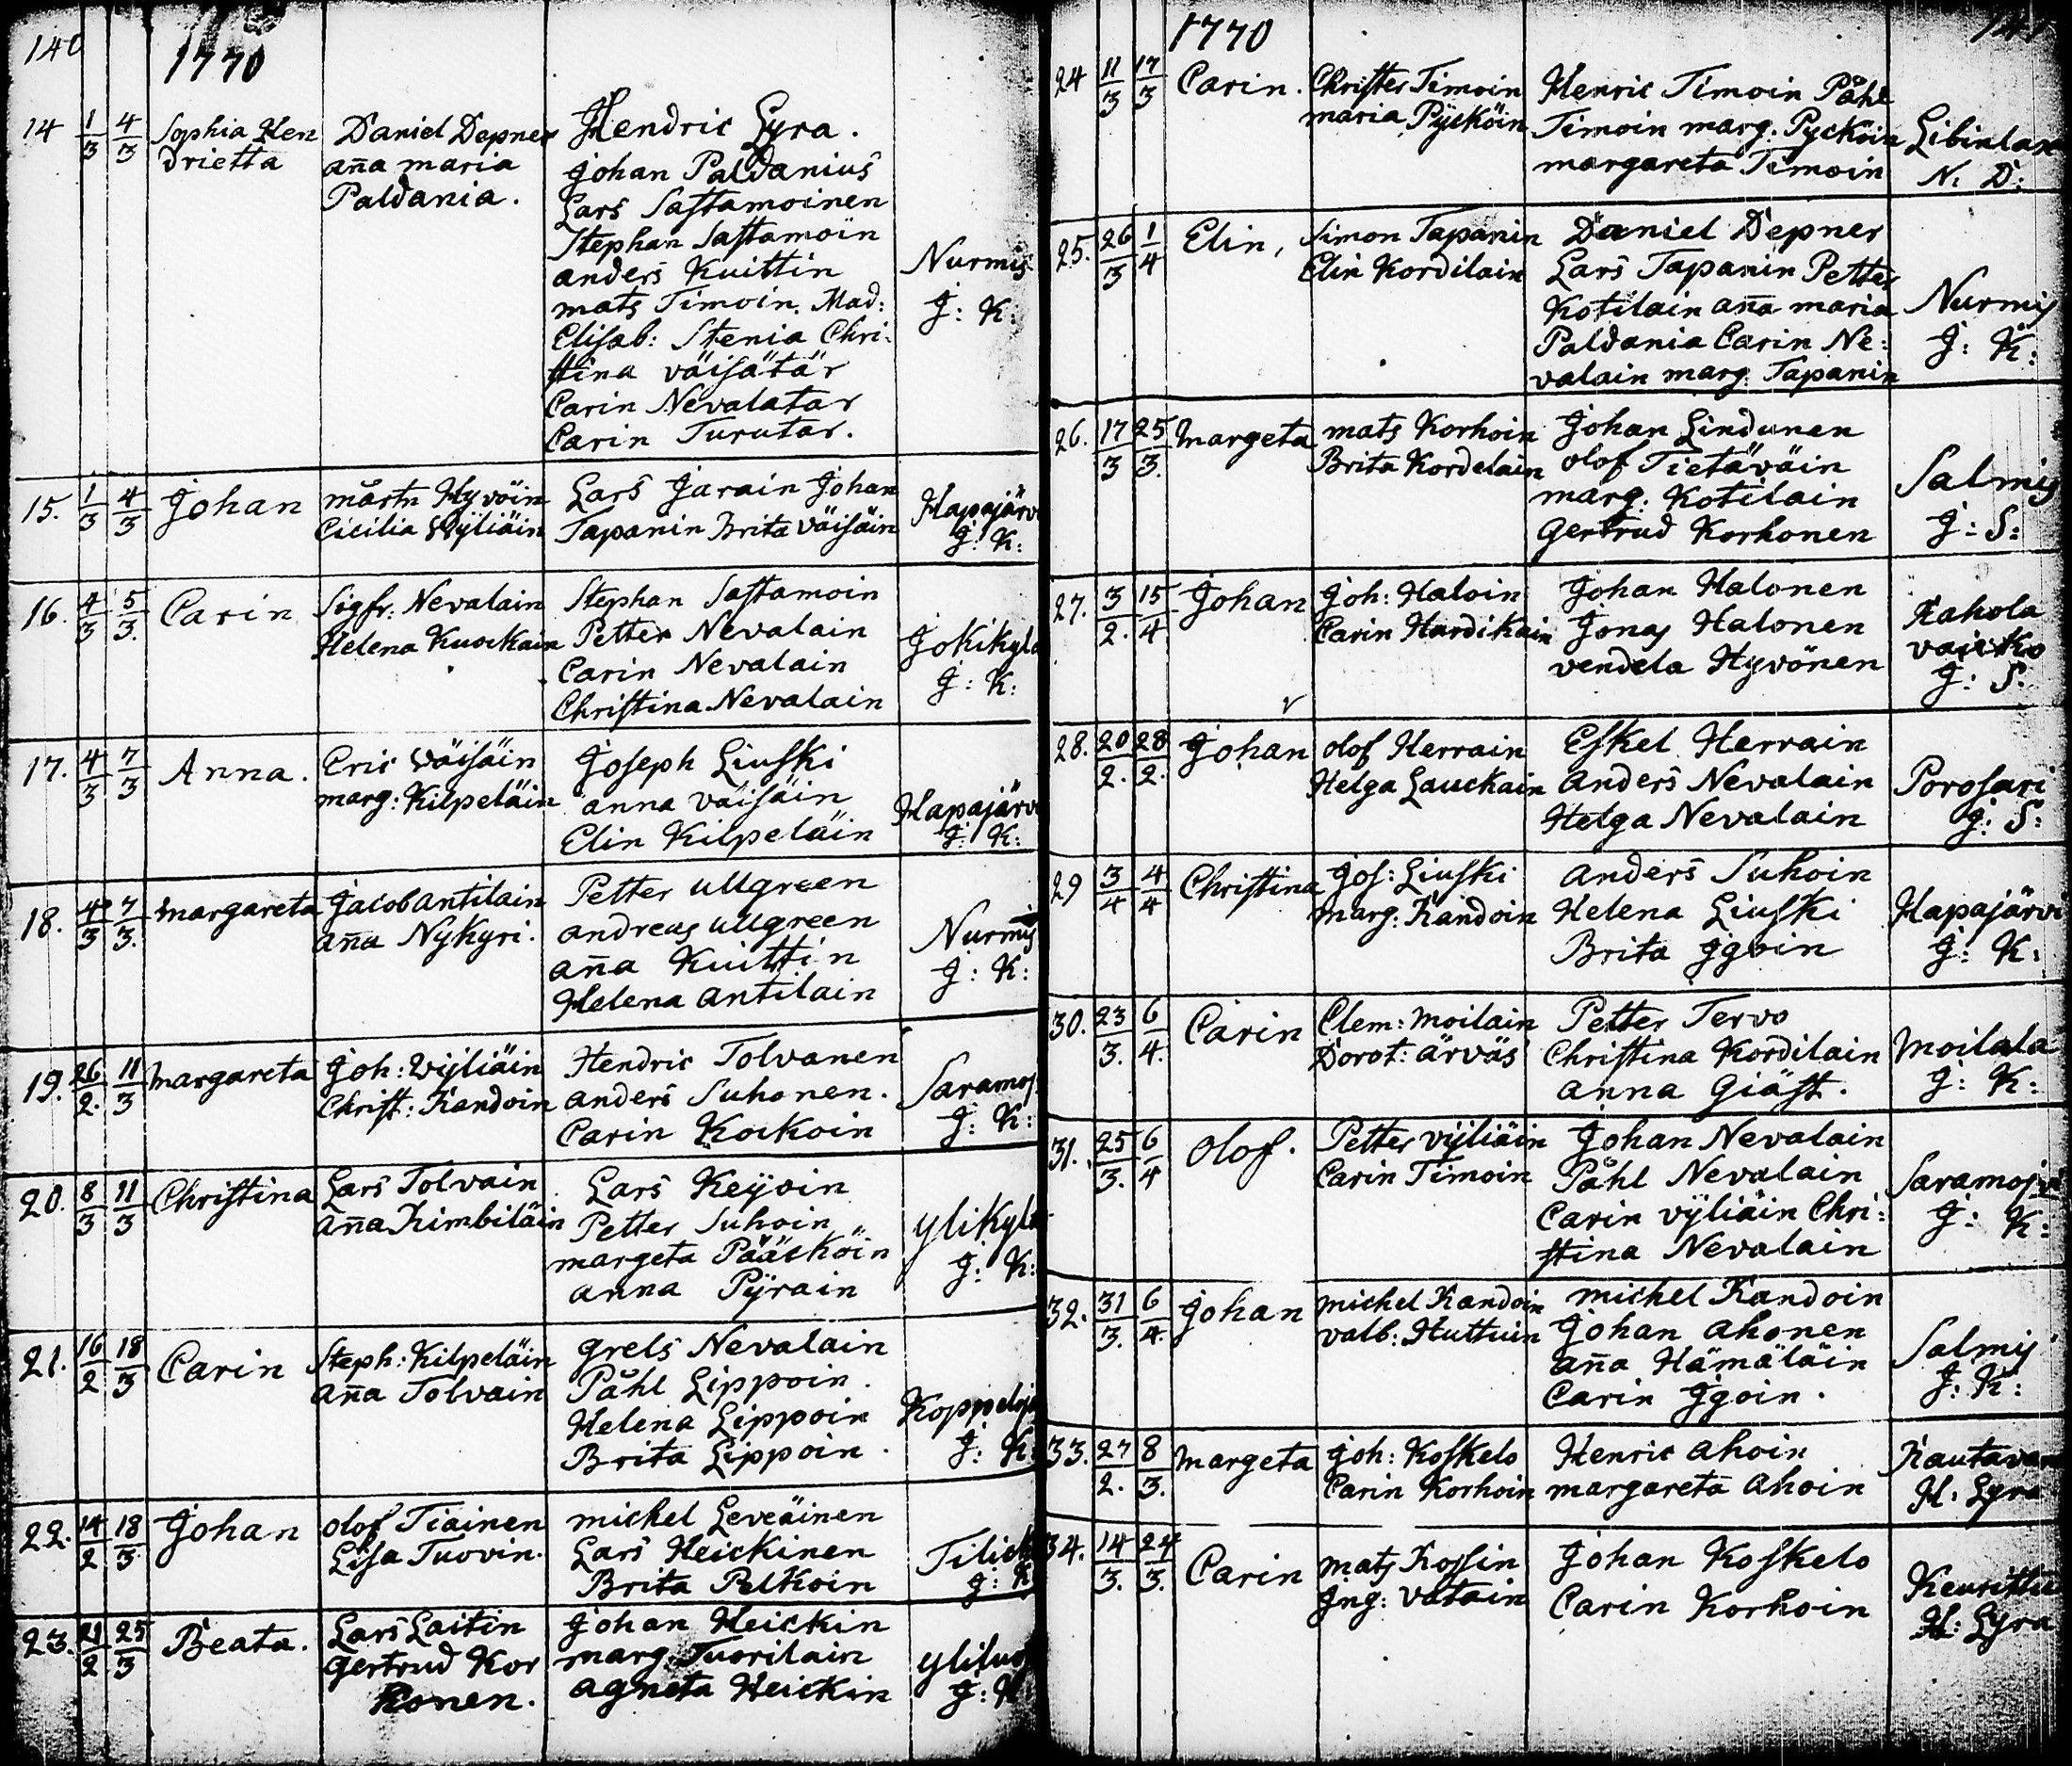 140
1770
14 1/3 4/3 Sophia Hen
drietta
Daniel Depner
aña maria
Paldania.
Hendric Lyra.
Johan Paldanius
Lars Sastamoinen
Stephan Sastamoin
anders Kuittin
mats Timoin. Mad:
Elisab: Stenia Chri:
stina väisätär
Carin Nevalatar
Carin Turutar.
Nurmis
J: K:
15. 1/3 4/3 Johan
mårtn Hyvöin
Cicilia Wyliäin
Lars Jarain Johan
Tapanin Brita väisäin
Hapajärv
J: K:
16. 4/3 5/3. Carin
Sigfr: Nevalain
Helena Kuockain
Stephan Sastamoin
Petter Nevalain
Carin Nevalain
Christina Nevalain
Jokikylä
J: K:
17. 4/3 7/3 Anna.
Eric väisäin
marg: Kilpeläin
Joseph Liuski
anna väisäin
Elin Kilpeläin
Hapajärv
J: K:
18. 4/3 7/3. margareta
Jacob antilain
aña Nykyri.
Petter ullgreen
andreas ullgreen
aña Kuittin
Helena antilain
Nurmis
J: K:
19. 26/2. 11/3 margareta
Joh: Wyliäin
Christ: Kandoin
Hendric Tolvanen
anders Suhonen.
Carin Kockoin
Saramoj
J: K:
20. 8/3 11/3 Christina
Lars Tolvain
aña Kimbiläin
Lars Keijoin
Petter Suhoin
margeta Pääsköin
anna Pyrain
ylikylä
J: K:
21. 16/2 18/3 Carin
Steph: Kilpeläin
aña Tolvain
grels Nevalain
Påhl Lippoin.
Helena Lippoin
Brita Lippoin.
Koppeloj
J: K
22. 14/2 18/3. Johan
olof Tiainen
Lisa Tuovin.
michel Leveäinen
Lars Heickinen
Brita Pelkoin
Tilick
J: K
23. 21/2 25/3 Beata.
Lars Laitin
gertrud Kor
honen.
Johan Heickin
marg Tuorilain
agneta Heickin
J: K
1770
24 11/3 17/3 Carin.
Christer Timoin
maria Pycköin
Henric Timoin Påhl
Timoin marg. Pycköin
margareta Timoin
Libinlax
N: D:
25. 26/3 1/4 Elin,
Simon Tapanin
Elin Kordilain
Daniel Depner
Lars Tapanin Petter
Kotilain aña maria
Paldania Carin Ne:
valain marg. Tapanin
Nurmis
J: K:
26. 17/3 25/3. margeta
mats Korhoin
Brita Kordelain
Johan Lindunen
olof Tietäväin
marg: Kotilain
gertrud Korhonen
Salmis
J: S:
27. 3/2. 15/4 Johan
Joh: Haloin
Carin Hardikain
Johan Halonen
Jonas Halonen
vendela Hyvönen
J: S:
28. 20/2. 28/2. Johan
olof Herrain
Helga Lauckain
Eskel Herrain
anders Nevalain
Helga Nevalain
Porosari
J: S:
29 3/4 4/4 Christina
Jos: Liuski
marg: Kandoin
anders Suhoin
Helena Liuski
Brita Jgoin
Hapajärvi
J: K:
30. 23/3. 6/4. Carin
Clem: moilain
Dorot: ärväs
Petter Tervo
Christina Kordilain
anna Giäst.
Moilala
J: K:
31. 25/3. 6/4 olof.
Petter vyliäin
Carin Timoin
Johan Nevalain
Påhl Nevalain
Carin vyliäin Chri:
stina Nevalain
J: K:
32. 31/3. 6/4. Johan
michel Kandoin
valb: Huttuin
michel Kandoin
Johan ahonen
aña Hämäläin
Carin Jgoin.
Salmis
J: K:
33. 27/2. 8/3. margeta
Joh: Koskelo
Carin Korhoin
Henric ahoin
margareta ahoin
H: Lyra
34. 14/3. 24/3. Carin
mats Kossin
Jng: vatain
Johan Koskelo
Carin Korhoin
H: Lyra